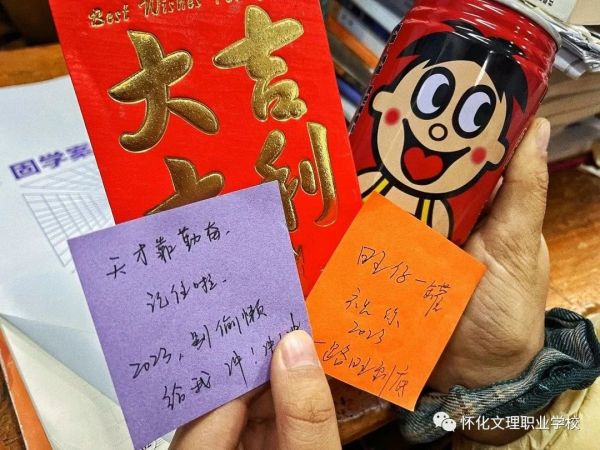 Best Wishes For
大吉
大利
固学案
天才靠勤奋.
记住啦.
2023,别偷懒
给我冲!冲!冲
旺仔一罐
祝你
2023
一路旺到底
怀化文理职业学校